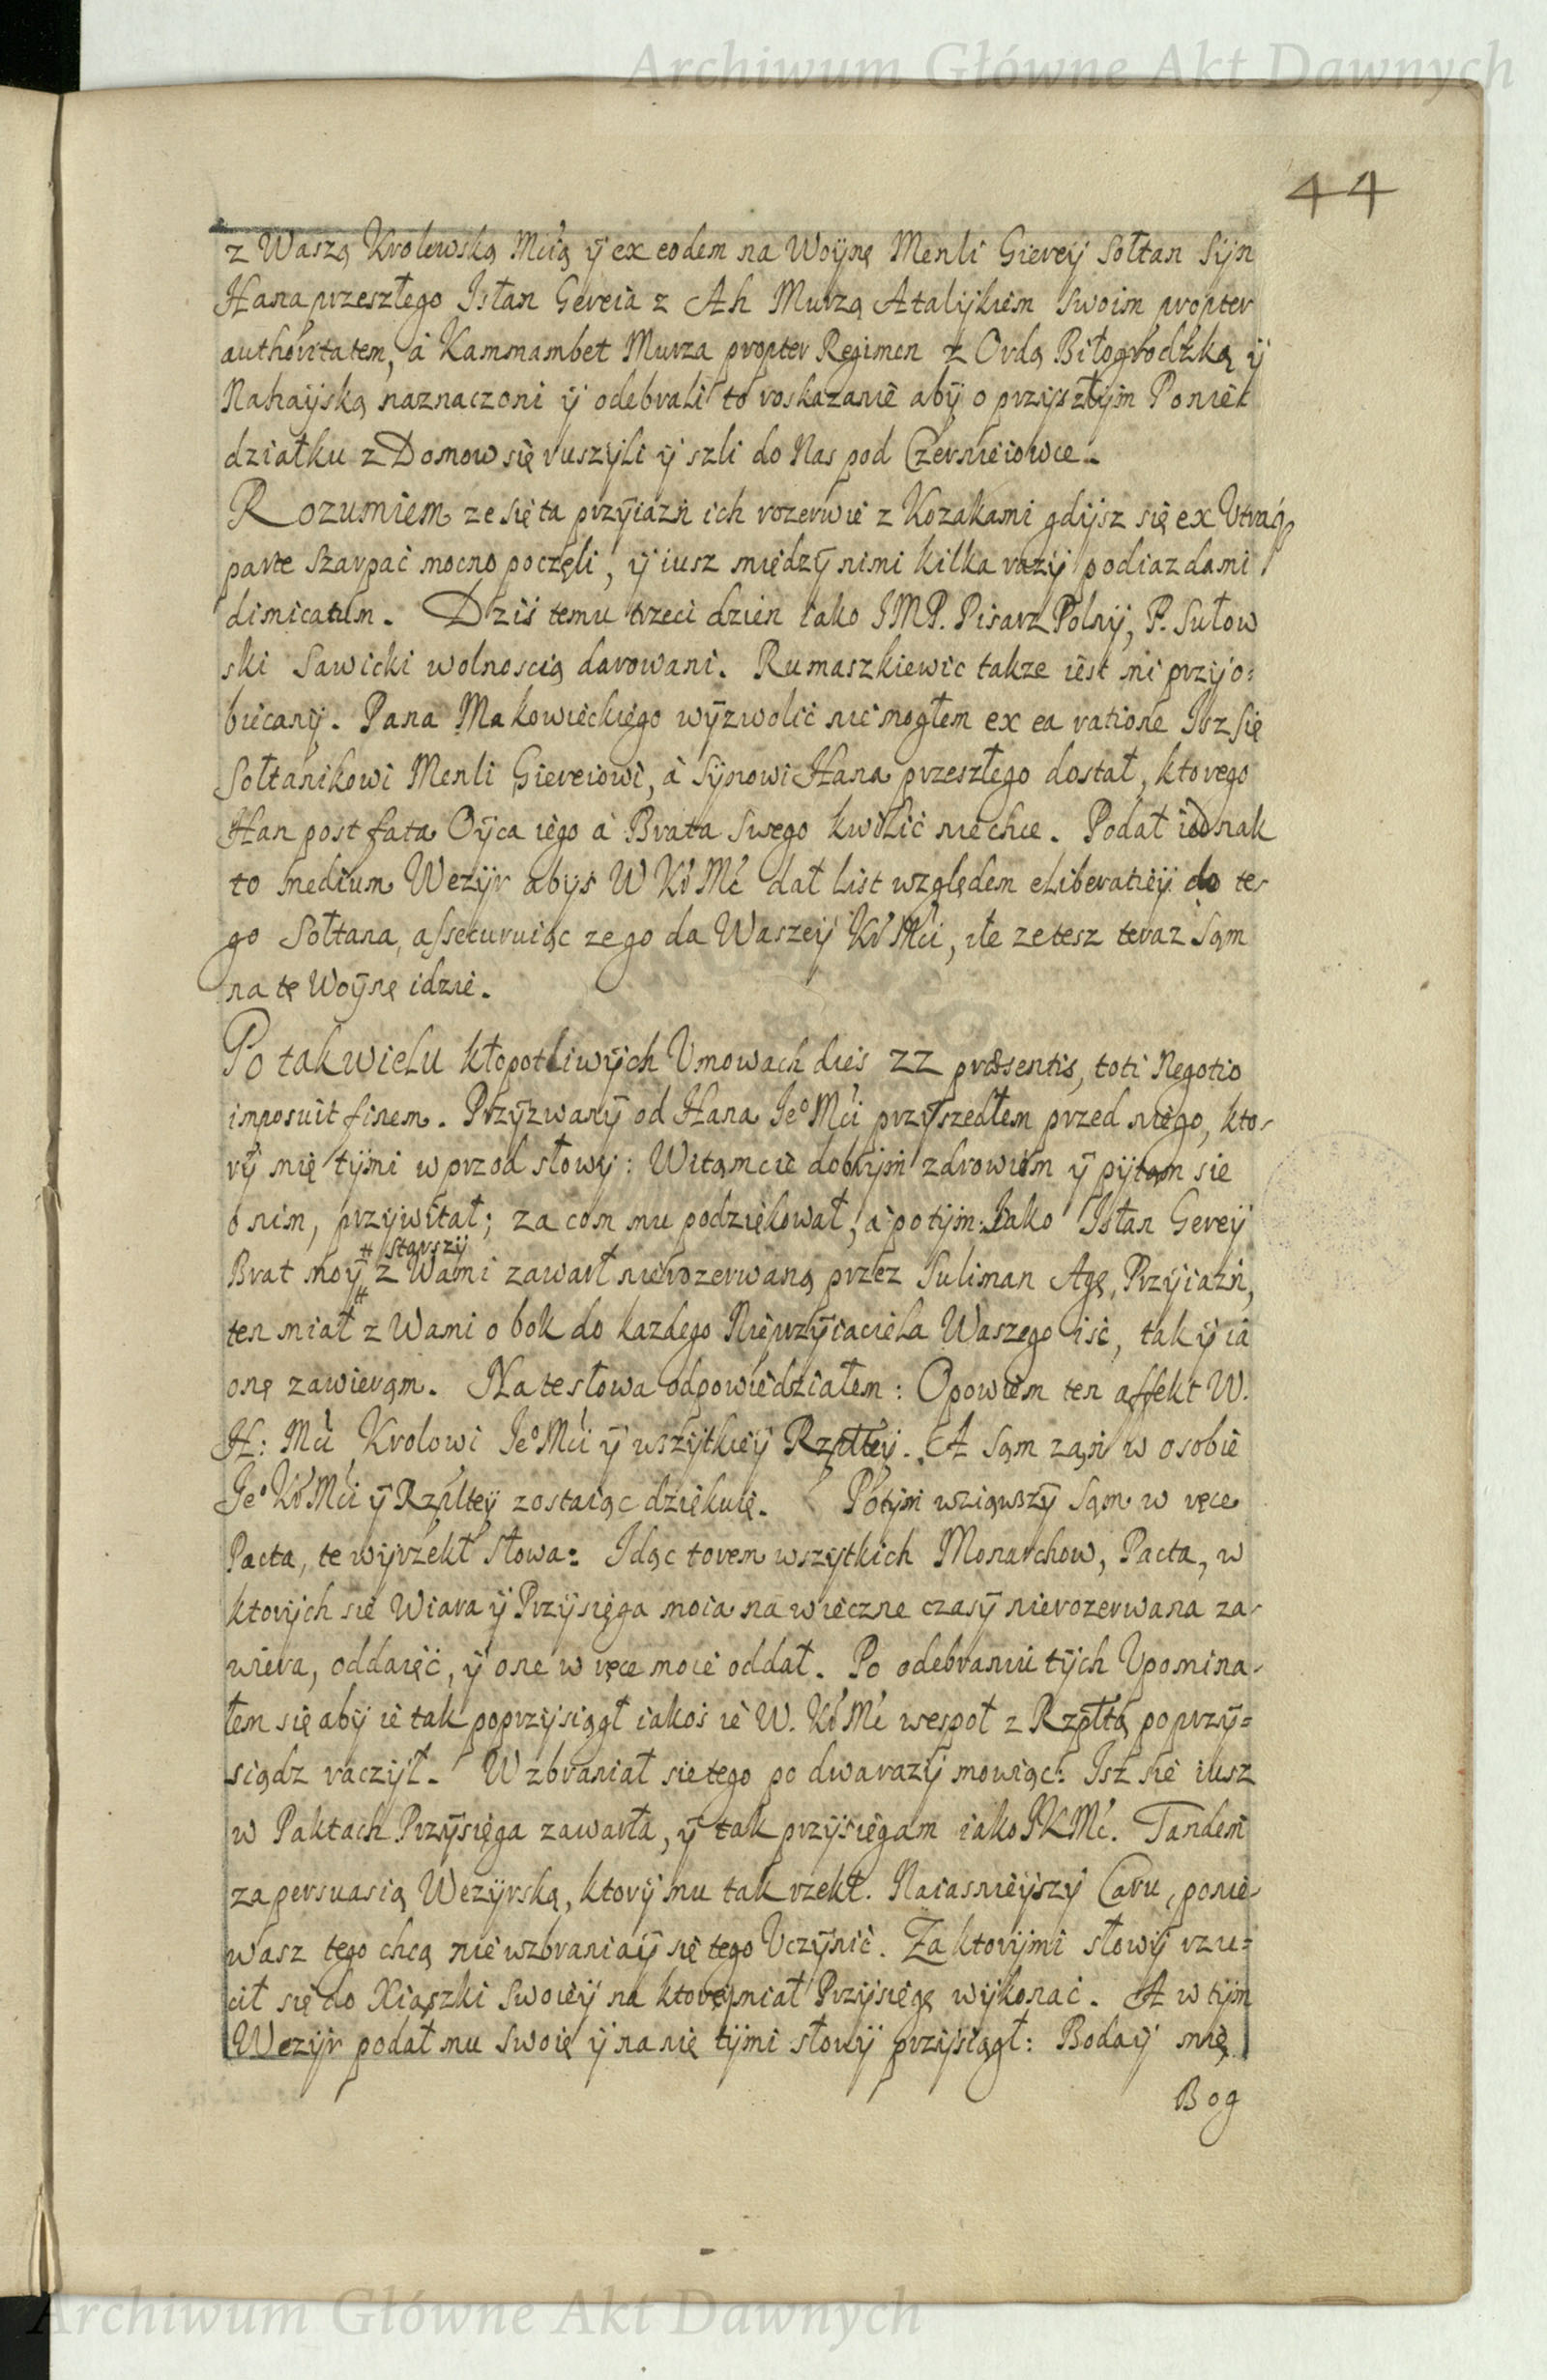 Archiwum Główne Akt Dawnych
44
z Waszą Krolewską Mcią ÿ ex eodem na Woÿnę Menli Giereÿ Sołtan Sÿn
Hana przeszłego Isłan Gereia z Ah Murzą Atalÿkiem swoim propter
authoritatem, à Kammambet Murza propter Regimen z Ordą Biłogrodzką ÿ
Nahaÿską naznaczoni ÿ odebrali to roskazanie abÿ o przÿszłÿm Ponie
działku z Domow się ruszÿli ÿ szli do Nas pod Czerniejowce.
Rozumiem ze się ta przÿiazń ich rozerwie z Kozakami gdÿsz się ex Utraq
parte szarpać mocno poczęli, ÿ iusz międzÿ nimi kilka razÿ podiazdami
dimicatum. Dziś temu trzeci dzien iako JMP. Pisarz Polnÿ, P. Sułow
ski Sawicki wolnoscią darowani. Rumaszkiewic takze iest mi przÿo=
biecanÿ. Pana Makowieckiego wÿzwolić nie mogłem ex ea ratione Isz się
Sołtanikowi Menli Giereiowi, à Sÿnowi Hana przeszłego dostał, ktorego
Han post fata Oÿca iego à Brata swego kwilić niechce. Podał iednak
to medium Wezÿr abÿs W Kr Mć dał list względem eliberatieÿ do te-
go Sołtana, assecuruiąc ze go da Waszeÿ Kr Mći, ile zetesz teraz sąm
na tę Woÿnę idzie.
Po tak wielu kłopotliwÿch Umowach dies 22 præsentis, toti Negotio
imposuit finem. Przÿzwanÿ od Hana Jeº Mći przÿszedłem przed niego, kto-
rÿ mię tÿmi wprzod słowÿ: Witamcie dobrÿm zdrowiem ÿ pÿtam sie
o nim, przÿwitał; za com mu podziękował, a potÿm: Jako Isłan Gereÿ
# starszÿ
Brat moÿ # z Wami zawarł nierozerwaną przez Suliman Agę, Przÿiazń,
ten miał z Wami o bok do kazdego Nieprzÿiaciela Waszego iść, tak ÿ ia
onę zawierąm. Na te słowa odpowiedziałem: Opowiem ten affekt W.
H: Mći Krolowi Jeº Mći ÿ wszÿtkieÿ Rzplteÿ. A sąm zaś w osobie
Jeº Kr Mći ÿ Rzplteÿ zostaiąc dziękuię. Potÿm wziąwszÿ sąm w ręce
Pacta, te wÿrzekł słowa: Idąc torem wszÿtkich Monarchow, Pacta, w
ktorÿch się Wiara ÿ Przÿsięga moia na wieczne czasÿ nierozerwana za-
wiera, oddaięć, ÿ one w ręce moie oddał. Po odebraniu tÿch Upomina-
łem się abÿ ie tak poprzÿsiągł iakoś ie W. Kr Mć wespoł z Rzpltą poprzÿ=
siądz raczÿł. Wzbraniał sie tego po dwa razÿ mowiąc: Isz się iusz
w Paktach Przÿsięga zawarła, ÿ tak przÿsięgam iako JKMć. Tandem
za persuasią Wezÿrską, ktorÿ mu tak rzekł. Naiasnieÿszÿ Caru, ponie-
wasz tego chcą nie wzbraniaÿ się tego Uczÿnić. Za ktorÿmi słowÿ rzu=
cił się do Xiąszki swoieÿ na ktoreÿ miał Przÿsięgę wÿkonać. A w tÿm
Wezÿr podał mu swoię ÿ na nię tÿmi słowÿ przÿsiągł: Bodaÿ mię
Bog
Archiwum Główne Akt Dawnych